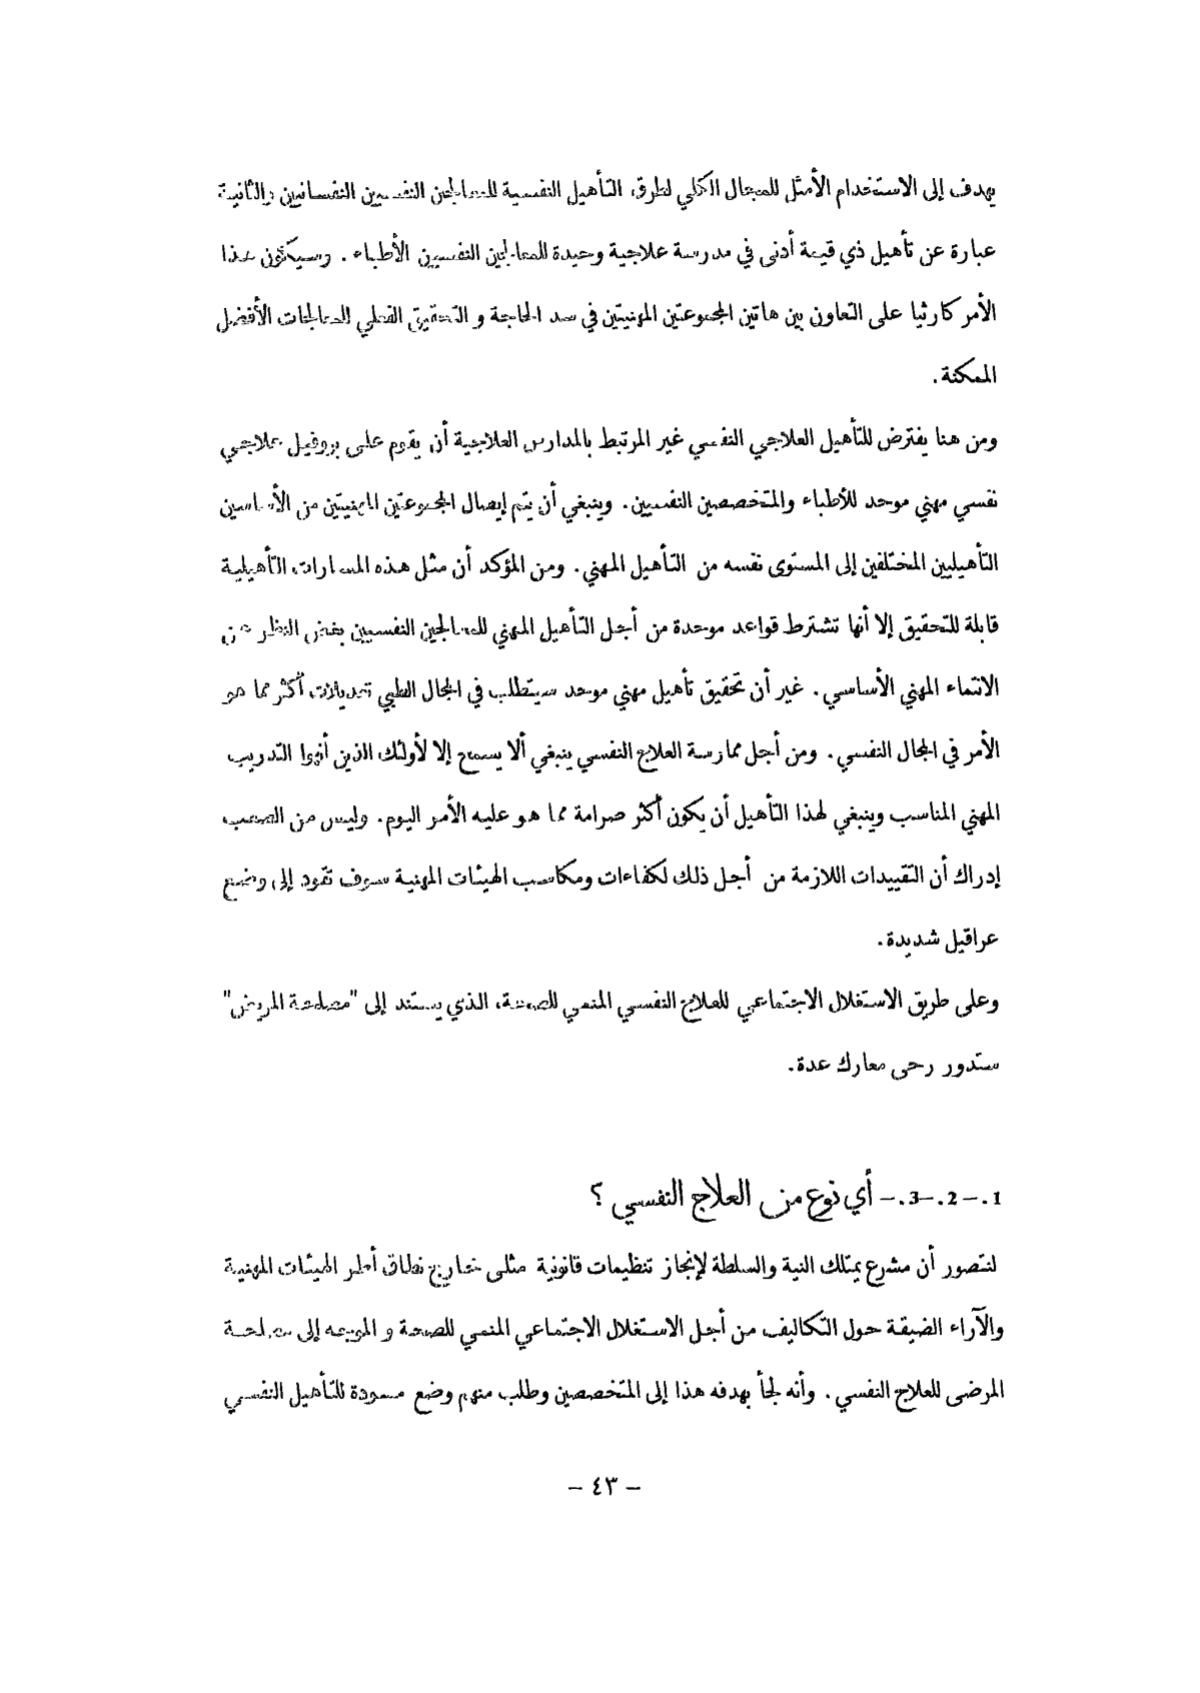 يهدف إلى الاستخدام الأمثل للمجال الكلي لطرق التأهيل النفسية للمعالجين النفسيين النفسانيين والثانية
عبارة عن تأهيل ذي قيمة أدنى في مدرسة علاجية وحيدة للمعالجين النفسيين الأطباء . وسيكون هذا
الأمر كارثيا على التعاون بين هاتين المجموعتين المهنيتين في سد الحاجة و التحقيق الفعلي للمعالجات الأفضل
الممكنة .
ومن هنا يفترض للتأهيل العلاجي النفسي غير المرتبط بالمدارس العلاجية أن يقوم على بروفيل علاجي
نفسي مهني موحد للأطباء والمتخصصين النفسيين . وينبغي أن يتم إيصال المجموعتين المهنيتين من الأساسين
التأهيليين المختلفين إلى المستوى نفسه من التأهيل المهني . ومن المؤكد أن مثل هذه المسارات التأهيلية
قابلة للتحقيق إلا أنها تشترط قواعد موحدة من أجل التأهيل المهني للمعالجين النفسيين بغض النظر عن
الانتماء المهني الأساسي . غير أن تحقيق تأهيل مهني موحد سيتطلب في المجال الطبي تعديلات أكثر مما هو
الأمر في المجال النفسي . ومن أجل ممارسة العلاج النفسي ينبغي ألا يسمح إلا لأولئك الذين أنهوا التدريب
المهني المناسب وينبغي لهذا التأهيل أن يكون أكثر صرامة مما هو عليه الأمر اليوم . وليس من الصعب
إدراك أن التقييدات اللازمة من أجل ذلك لكفاءات ومكاسب الهيئات المهنية سوف تقود إلى وضع
عراقيل شديدة .
وعلى طريق الاستغلال الاجتماعي للعلاج النفسي المنمي للصحة، الذي يستند إلى "مصلحة المريض"
ستدور رحى معارك عدة .
1 . – 2 . –3 . – أي نوع من العلاج النفسي ؟
لنتصور أن مشرع يمتلك النية والسلطة لإنجاز تنظيمات قانونية مثلى خارج نطاق أطر الهيئات المهنية
والآراء الضيقة حول التكاليف من أجل الاستغلال الاجتماعي المنمي للصحة و الموجه إلى مصلحة
المرضى للعلاج النفسي . وأنه لجأ بهدفه هذا إلى المتخصصين وطلب منهم وضع مسودة للتأهيل النفسي
– ٤٣ –